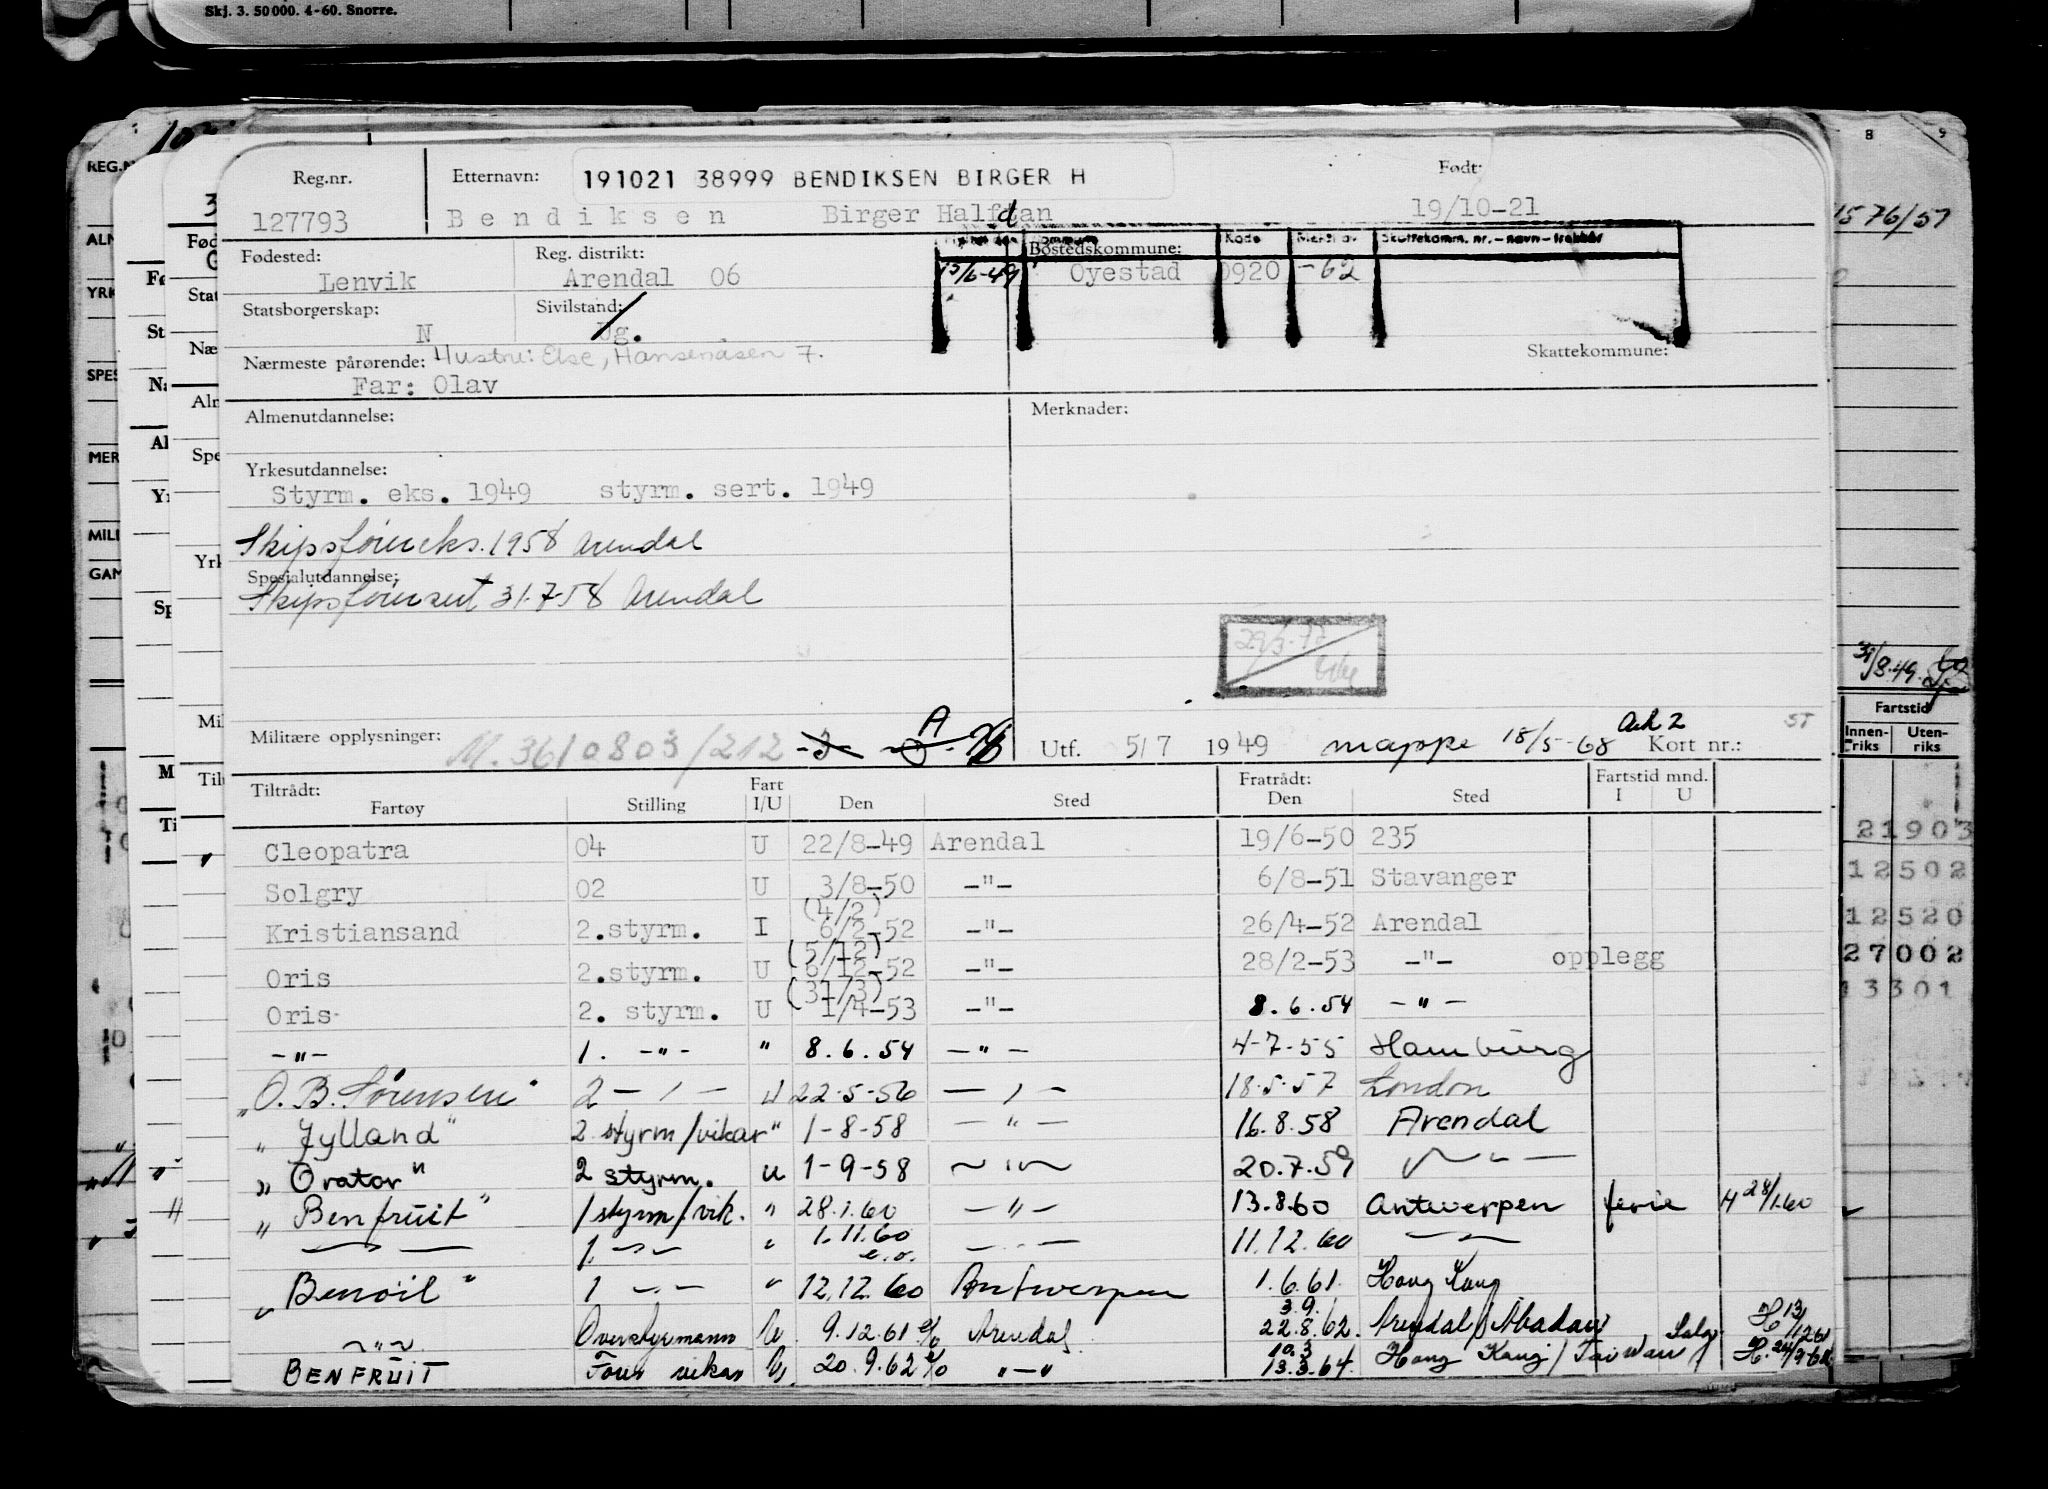 Skj. 3. 50 000. 4-60. Snorre.
Reg.nr. Etternavn: 191021 38999 BENDIKSEN BIRGER H Født:
127793 Bendiksen Birger Halfdan 19/10-21
Fødested: Reg. distrikt: Bostedskommune: Kode Skattekomm. nr. - navn -
Lenvik Arendal 06 15/6-49 Oyestad 0920 -62
Statsborgerskap: Sivilstand:
N Ug.
Nærmeste pårørende: Hustru: Else, Hansenåsen 7. Skattekommune:
Far: Olav
Almenutdannelse: Merknader:
Yrkesutdannelse:
Styrm. eks. 1949 styrm. sert. 1949
Skipsførereks. 1958 Arendal
Spesialutdannelse:
Skipsførersert 31.7.58 Arendal
Militære opplysninger: M. 3610803/212 -3- A Utf. 5/7 1949 mappe 18/5-68 Ark 2 Kort nr.:
Tiltrådt: Fart Fratrådt: Fartstid mnd.
Fartøy Stilling I/U Den Sted Den Sted I U
Cleopatra 04 U 22/8-49 Arendal 19/6-50 235
Solgry 02 U 3/8-50 -"- 6/8-51 Stavanger
Kristiansand 2.styrm. I (4/2) 6/2-52 -"- 26/4-52 Arendal
Oris 2.styrm. U (5/12) 6/12-52 -"- 28/2-53 -"- opplegg
Oris 2. styrm. U (31/3) 1/4-53 -"- 8.6.54 -"-
-"- 1. -"- " 8.6.54 -"- 4-7-55 Hamburg
"O. B. Sørensen" 2 -"- U 22-5-56 -"- 18.5.57 London
"Jylland" 2 styrm/vikar " 1-8-58 -"- 16.8.58 Arendal
"Orator" 2 styrm. u 1-9-58 -"- 20.7.59 -"-
"Benfruit" 1 styrm/vik. " 28.1.60 -"- 13.8.60 Antwerpen ferie H 28/1.60
-"- 1. -"- " 1.11.60 e.o. -"- 11.12.60 -"-
"Benoil" 1 -"- " 12.12.60 Antwerpen 1.6.61 Hong Kong
-"- Overstyrmann U. 9.12.61 e/o Arendal 3.9. 22.8.62. Arendal/Abadan
BENFRUIT Fører vikar U. 20.9.62 e/o "-" 10.3 13.3.64. Hong Kong/Taiwan Salg
REG.N
SPES
MER
MILI
GAM
8 9
1576/57
31/8.49.
Fartstid
Innenriks Utenriks
21903
12502
12520
27002
13301